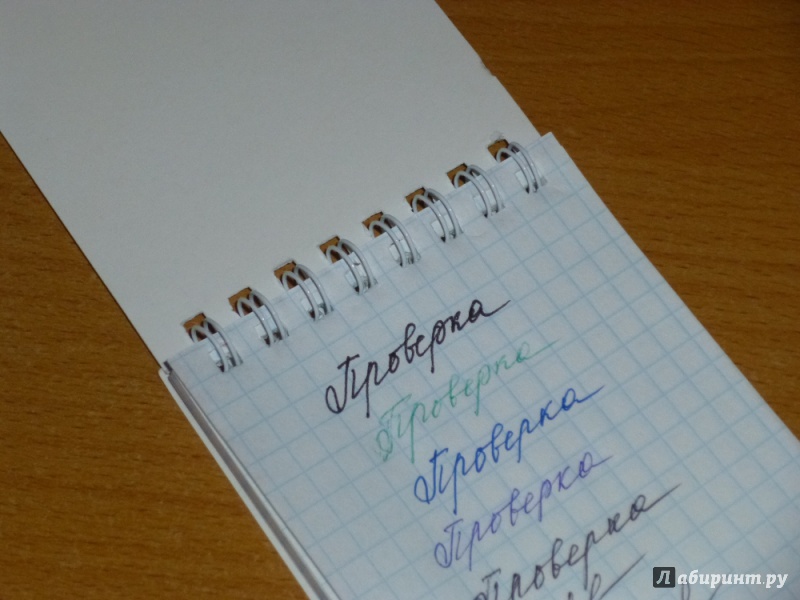 Проверка
Проверка
Проверка
Проверка
Проверка
Лабиринт.ру